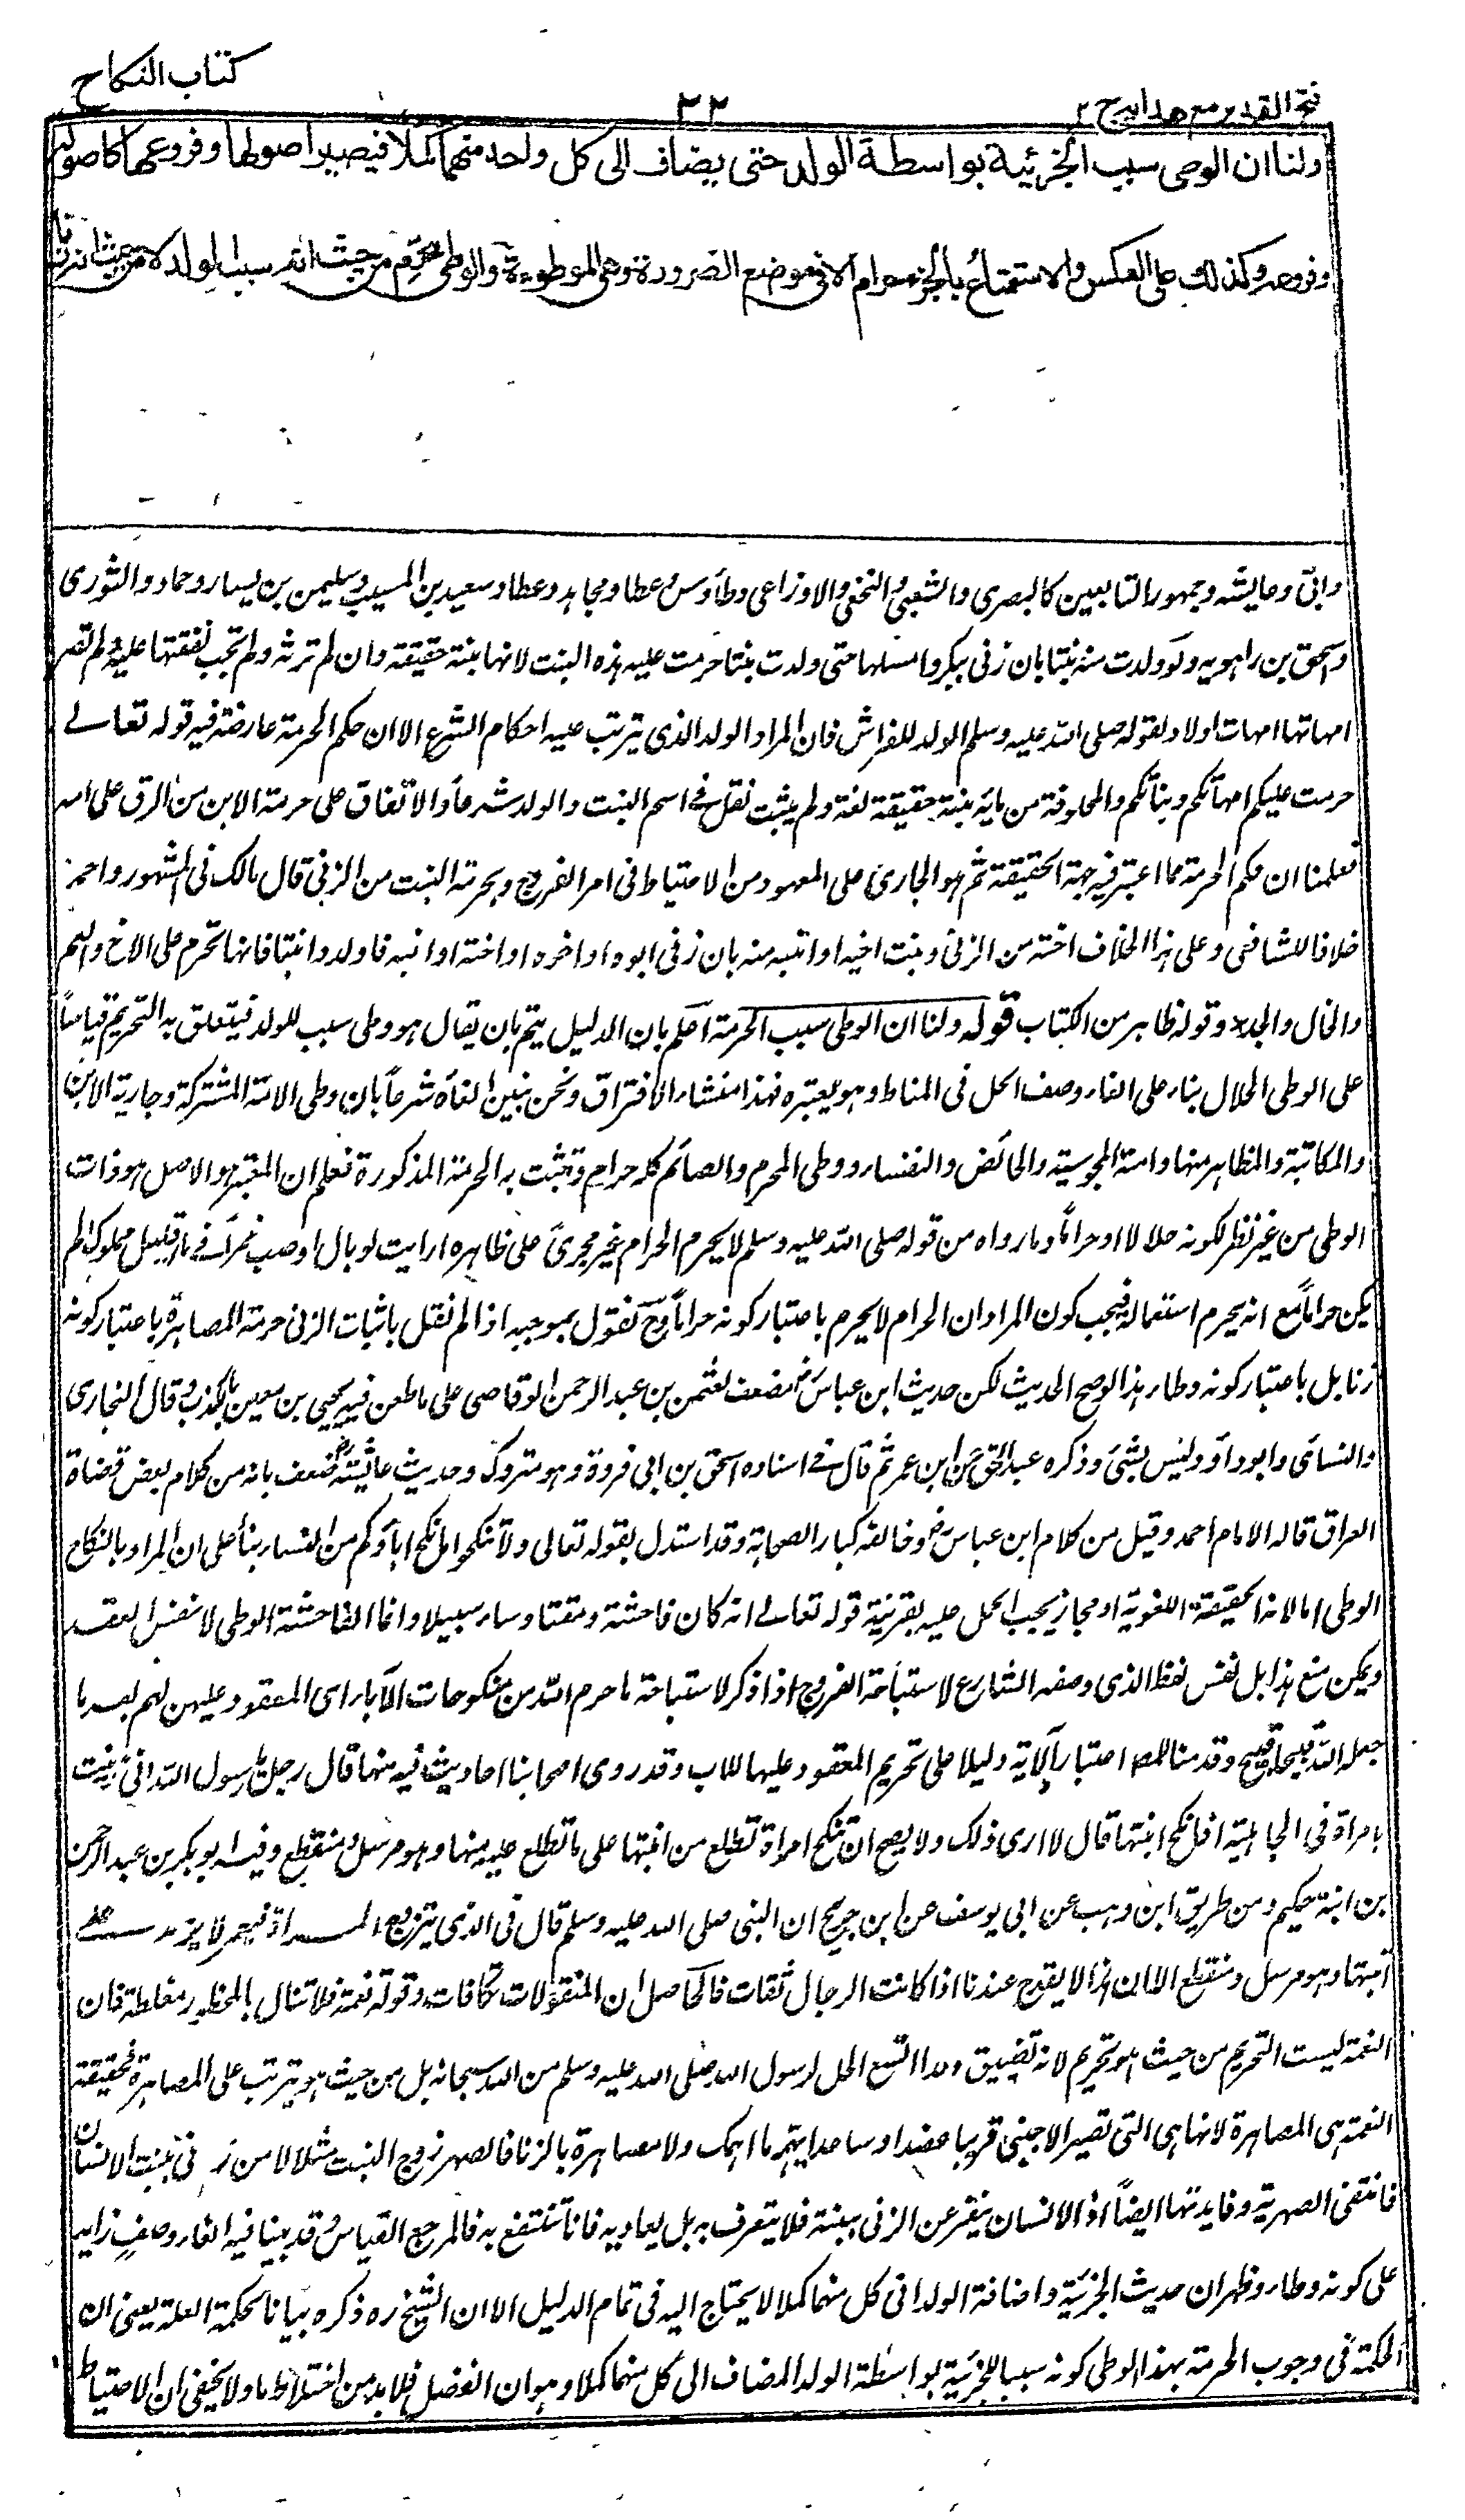 كتاب النكاح
٣٢
فتح القدير مع هدايه ج ٢
ولنا ان الوطى سبب الجزئية بواسطة الولد حتى يضاف الى كل واحد منهما كملا فيصير اصولها وفروعها كاصوله
وفروعه وكذلك على العكس والاستمتاع بالجزء حرام الا فى موضع الضرورة وهى الموطوءة والوطى محرم من حيث انه سبب الولد لا من حيث انه زنا
وابى وعايشه وجمهور التابعين كالبصرى والشعبى والنخعى والاوزاعى وطاؤس وعطا ومجاهد وعطا وسعيد بن المسيب وسليمن بن يسار وحماد والثورى
واسحق بن راهويه ولو ولدت منه بنتا بان زنى ببكر وامسكها حتى ولدت بنتا حرمت عليه هذه البنت لانها بنته حقيقة وان لم ترثه ولم تجب نفقتها عليه ولم تصر
امهاتها امهات اولاد لقوله صلى الله عليه وسلم الولد للفراش فان المراد الولد الذى يترتب عليه احكام الشرع الا ان حكم الحرمة عارضه فيه قوله تعالے
حرمت عليكم امهاتكم وبناتكم والمخلوقة من مائه بنته حقيقة لغة ولم يثبت نقل فے اسم البنت والولد شرعا والاتفاق على حرمة الابن من الزنى على امه
فعلمنا ان حكم الحرمة مما اعتبر فيه جهة الحقيقة ثم هو الجارى على المعهود من الاحتياط فى امر الفروج وبحرمة البنت من الزنى قال مالك فى المشهور واحمد
خلافا للشافعى وعلى هذا الخلاف اخته من الزنى وبنت اخيه او ابنته منه بان زنى ابوه او اخوه او اخته او ابنه فاولدوا بنتا فانها تحرم على الاخ والعم
والخال والجد وقوله ظاهر من الكتاب قوله ولنا ان الوطى سبب الحرمة اعلم بان الدليل يتم بان يقال هو وطى سبب للولد فيتعلق به التحريم قياسا
على الوطى الحلال بناء على الغاء وصف الحل فى المناط وهو يعتبره فهذا منشاء الافتراق ونحن نبين الغاءه شرعا بان وطى الامة المشتركة وجارية الابن
والمكاتبة والمظاهر منها وامته المجوسية والحائض والنفساء ووطى المحرم والصائم كله حرام وتثبت به الحرمة المذكورة فعلم ان المعتبر هو الاصل هو ذات
الوطى من غير نظر لكونه حلالا او حراما وما رواه من قوله صلى الله عليه وسلم لا يحرم الحرام غير مجرى على ظاهره ارايت لو بال او صب خمرا فے ماء قليل مملوك له لم
يكن حراما مع انه يحرم استعماله فيجب كون المراد ان الحرام لا يحرم باعتبار كونه حراما وح نقول بموجبه اذا لم نقل باثبات الزنى حرمة المصاهرة باعتبار كونه
زنا بل باعتبار كونه وطاء هذا لو صح الحديث لكن حديث ابن عباس ضعف لعثمن بن عبد الرحمن الوقاصى على ما طعن فيه يحيى بن معين بالكذب وقال البخارى
والنسائى وابو داؤد ليس بشئ وذكره عبد الحق عن ابن عمر ثم قال فے اسناده اسحق بن ابى فروة وهو متروك وحديث عائشة ضعف بانه من كلام بعض قضاة
العراق قاله الامام احمد وقيل من كلام ابن عباس وخالفه كبار الصحابة وقد استدل بقوله تعالى ولا تنكحوا ما نكح اباؤكم من النساء بناء على ان المراد بالنكاح
الوطى اما لانه الحقيقة اللغوية او مجاز يجب الحمل عليه بقرينة قوله تعالے انه كان فاحشة ومقتا وساء سبيلا وانما الفاحشة الوطى لا نفس العقد
ويمكن منع هذا بل نفس لفظ الذى وصفه الشارع لاستباحة الفروج اذا ذكر لاستباحة ما حرم الله من منكوحات الآباء اى المعقود عليهن لهم بعد ما
جعله الله قبيحا قبيح وقدمنا للمصـ اعتبار الآية دليلا على تحريم المعقود عليها للاب وقد روى اصحابنا احاديث فيه منها قال رجل يا رسول الله انى زنيت
بامراة فى الجاهلية افانكح ابنتها قال لا ارى ذلك ولا يصح ان تنكح امراة تطلع من ابنتها على ما تطلع عليه منها وهو مرسل ومنقطع وفيه ابو بكر بن عبد الرحمن
بن ابنة حكيم ومن طريق ابن وهب عن ابى يوسف عن ابن جريج ان النبى صلى الله عليه وسلم قال فى الذى يتزوج المراة فيغمز لا يزيد على
ابنتها وهو مرسل ومنقطع الا ان هذا لا يقدح عندنا اذا كانت الرجال ثقات فالحاصل ان المنقولات تكافات وقوله نعمة فلا تنال بالمحظور مغلطة فان
النعمة ليست التحريم من حيث هو تحريم لانه تضييق ولذا اتسع الحل لرسول الله صلى الله عليه وسلم من الله سبحانه بل من حيث هو يترتب على المصاهرة فحقيقة
النعمة هى المصاهرة لانها هى التى تصير الاجنبى قريبا عضدا وساعدا يهمه ما اهمك ولا مصاهرة بالزنا فالصهر زوج البنت مثلا لا من زنى ببنت الانسان
فانتفى الصهرية وفايدتها ايضا اذ الانسان ينفر عن الزنى ببنته فلا يتعرف به بل يعاديه فانا تنتفع به فالمرجع القياس وقد بينا فيه الغاء وصف زايد
على كونه وطاء وظهر ان حديث الجزئية واضافة الولد الى كل منهما كملا لا يحتاج اليه فى تمام الدليل الا ان الشيخ ره ذكره بيانا لحكمة العلة يعنى ان
الحكمة فى وجوب الحرمة بهذا الوطى كونه سببا للجزئية بواسطة الولد المضاف الى كل منهما كملا وهو ان انفصل فلا بد من اختلاط ما ولا يخفى ان الاحتياط